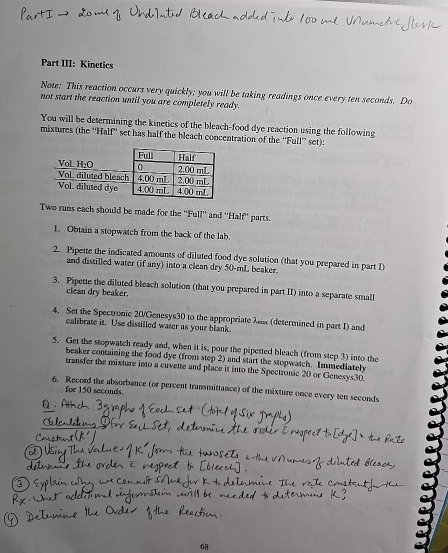 Part I → 20 ml of Undiluted Bleach added into 100 ml Volumetric flask
Part III: Kinetics
Note: This reaction occurs very quickly; you will be taking readings once every ten seconds. Do
not start the reaction until you are completely ready.
You will be determining the kinetics of the bleach-food dye reaction using the following
mixtures (the "Half" set has half the bleach concentration of the "Full" set):
Full Half
Vol. H₂O 0 2.00 mL
Vol. diluted bleach 4.00 mL 2.00 mL
Vol. diluted dye 4.00 mL 4.00 mL
Two runs each should be made for the "Full" and "Half" parts.
1. Obtain a stopwatch from the back of the lab.
2. Pipette the indicated amounts of diluted food dye solution (that you prepared in part I)
and distilled water (if any) into a clean dry 50-mL beaker.
3. Pipette the diluted bleach solution (that you prepared in part II) into a separate small
clean dry beaker.
4. Set the Spectronic 20/Genesys30 to the appropriate λmax (determined in part I) and
calibrate it. Use distilled water as your blank.
5. Get the stopwatch ready and, when it is, pour the pipetted bleach (from step 3) into the
beaker containing the food dye (from step 2) and start the stopwatch. Immediately
transfer the mixture into a cuvette and place it into the Spectronic 20 or Genesys30.
6. Record the absorbance (or percent transmittance) of the mixture once every ten seconds
for 150 seconds.
Q. Attach 3 graphs of Each set (total of Six graphs)
Calculations ① For Each Set, determine the order c̄ respect to [dye] & the Rate
Constant (K')
② Using the values of K' form the two sets & the volumes of diluted Bleach,
determine the order c̄ respect to [bleach].
③ Explain why we cannot solve for K to determine the rate constant for the
Rx. What additional information will be needed to determine K?
④ Determine the Order of the Reaction.
68